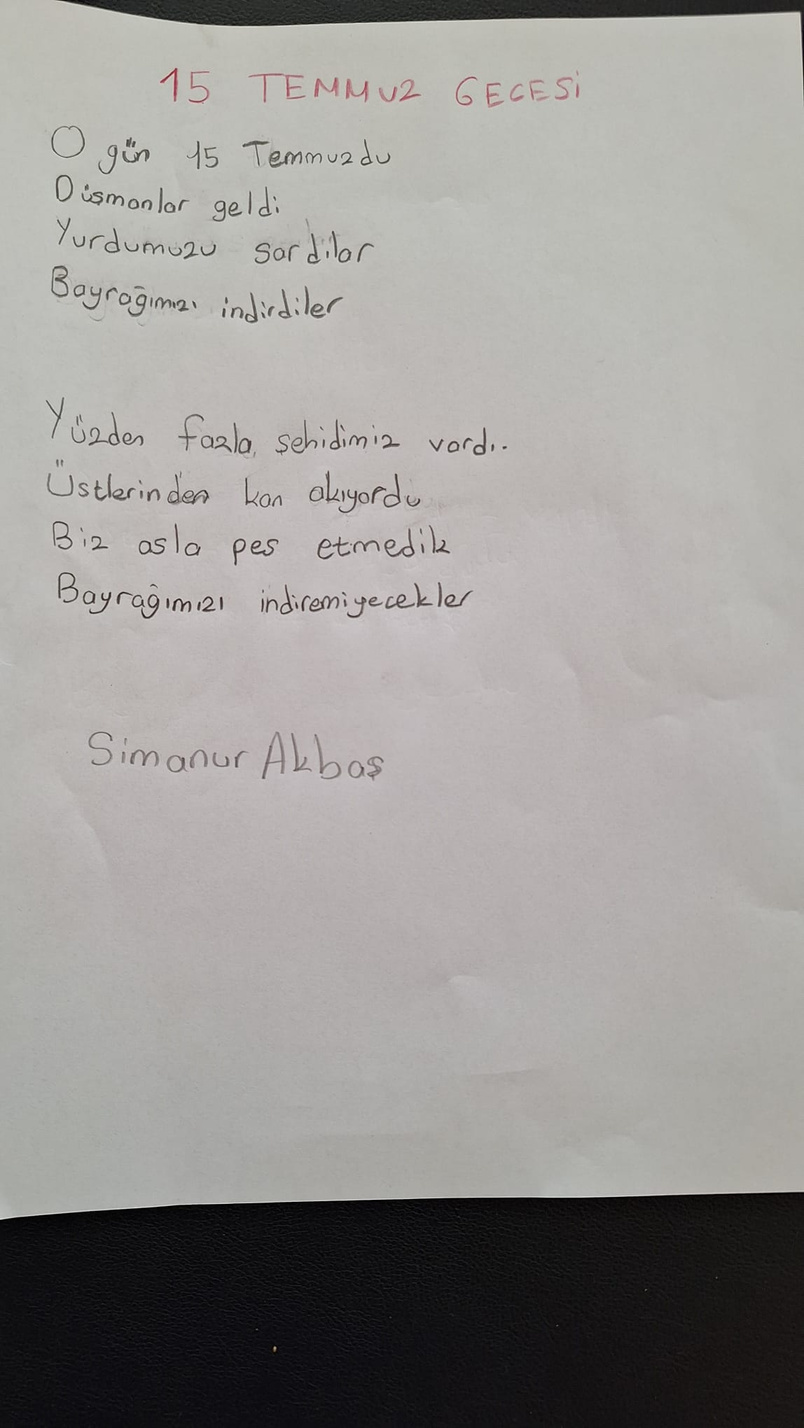 15 TEMMUZ GECESİ
O gün 15 Temmuzdu
Düşmanlar geldi
Yurdumuzu sardilar
Bayrağımızı indirdiler
Yüzden fazla şehidimiz vardı.
Üstlerinden kan akıyordu
Biz asla pes etmedik
Bayrağımızı indiremiyecekler
Simanur Akbaş